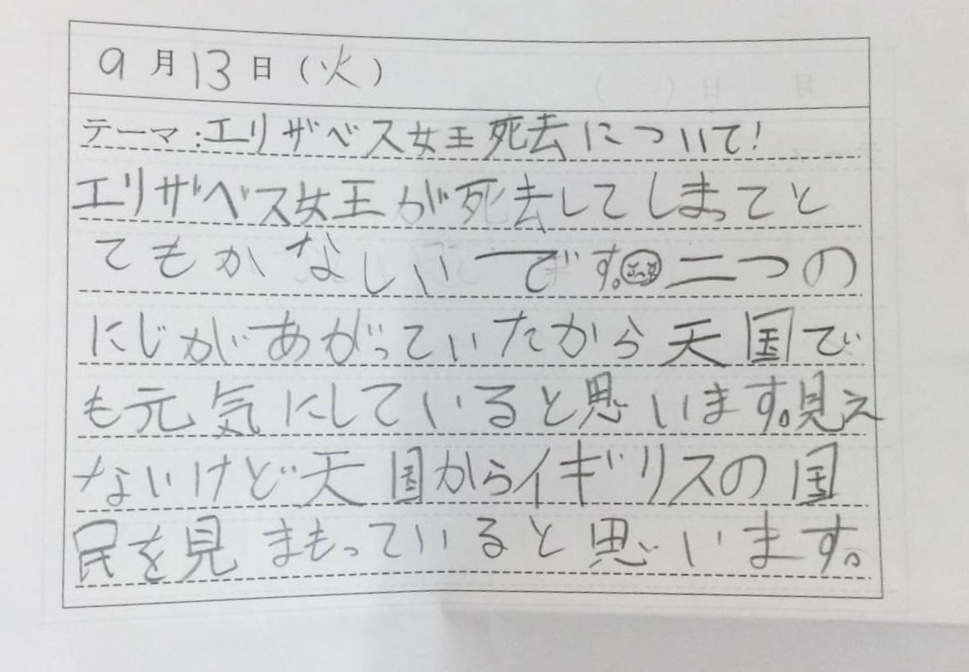 9月13日(火)
テーマ:エリザベス女王死去について!
エリザベス女王が死去してしまってと
てもかなしいです。二つの
にじがあがっていたから天国で
も元気にしていると思います。見え
ないけど天国からイギリスの国
民を見まもっていると思います。